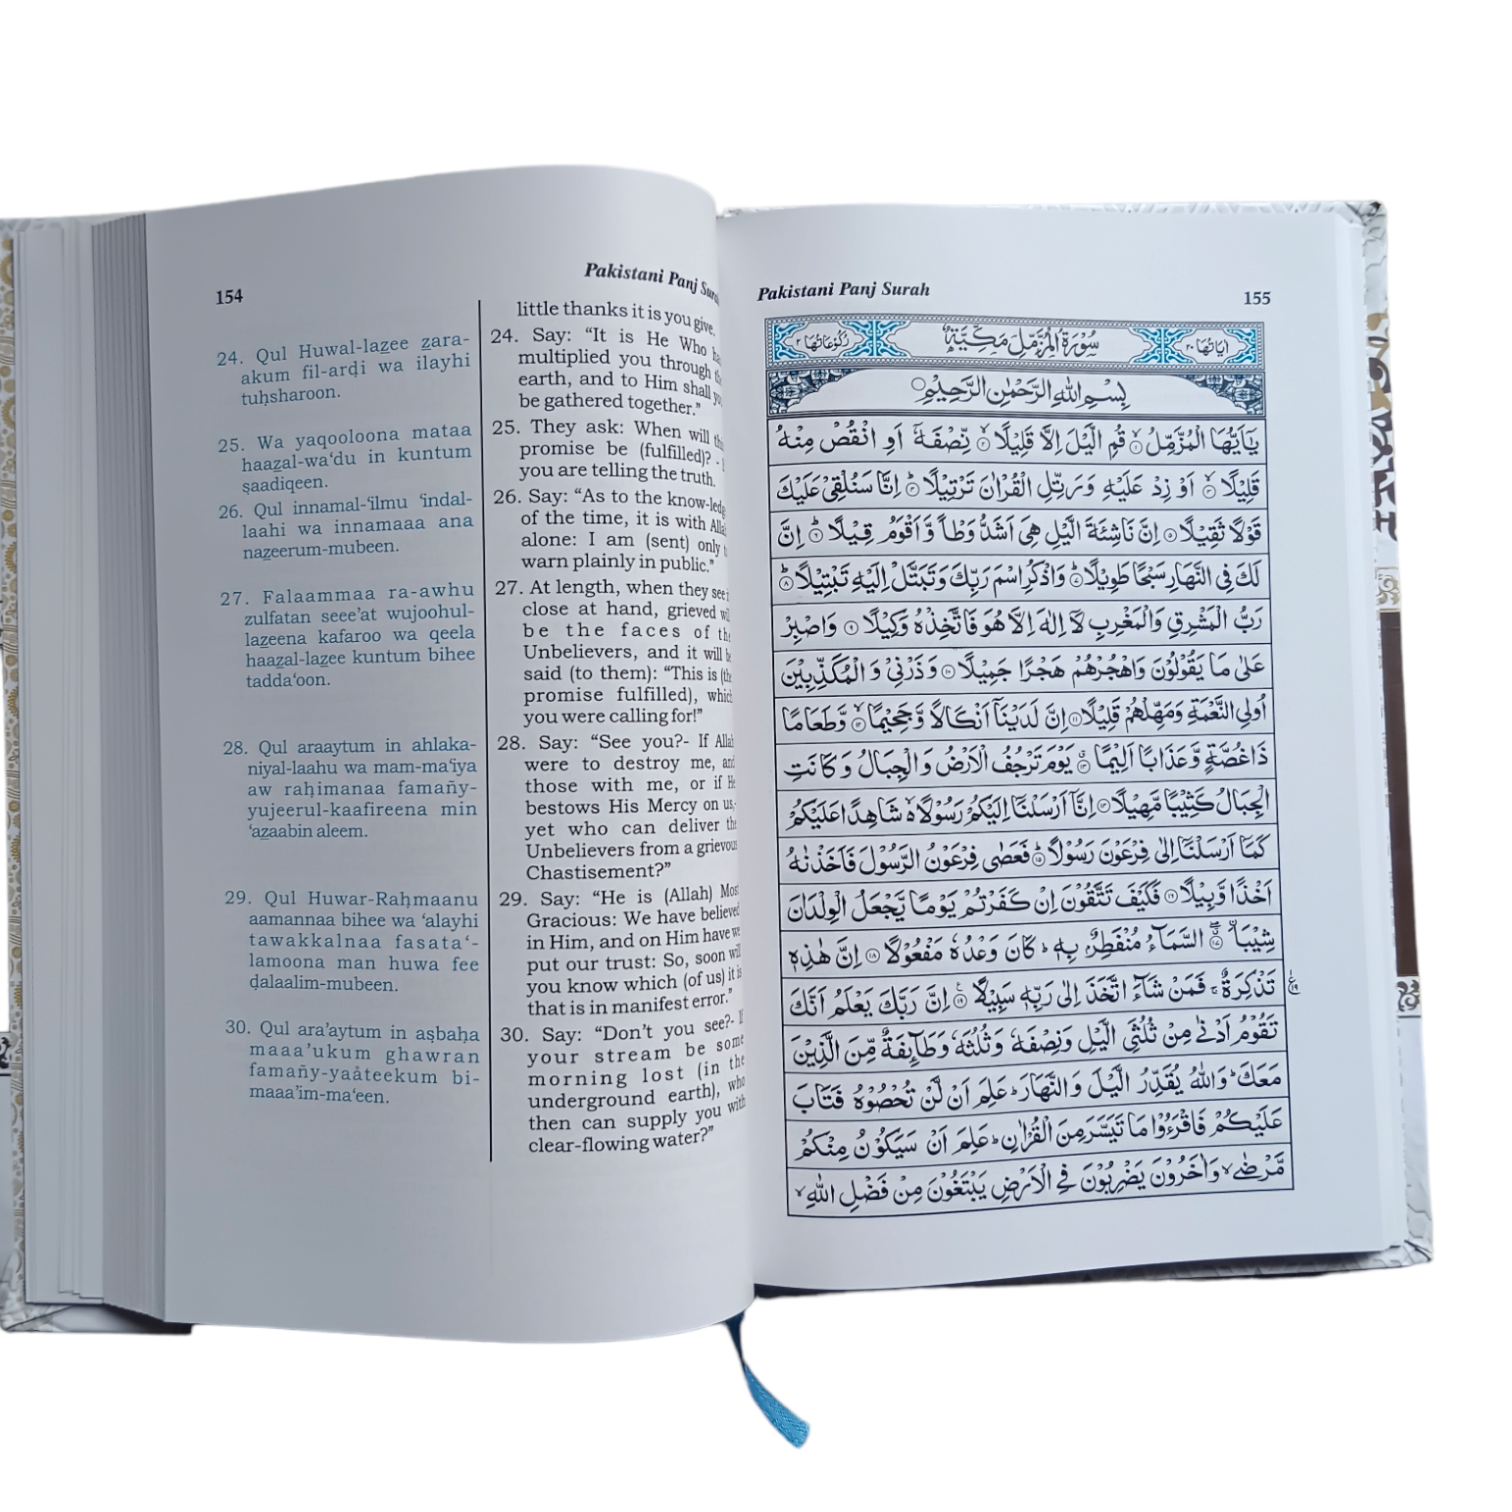 154
Pakistani Panj
24. Qul Huwal-lazee zara-
akum fil-arḍi wa ilayhi
tuḥsharoon.
25. Wa yaqooloona mataa
haazal-wa‘du in kuntum
ṣaadiqeen.
26. Qul innamal-‘ilmu ‘indal-
laahi wa innamaaa ana
nazeerum-mubeen.
27. Falaammaa ra-awhu
zulfatan seee'at wujoohul-
lazeena kafaroo wa qeela
haazal-lazee kuntum bihee
tadda‘oon.
28. Qul araaytum in ahlaka-
niyal-laahu wa mam-ma‘iya
aw raḥimanaa famañy-
yujeerul-kaafireena min
‘azaabin aleem.
29. Qul Huwar-Raḥmaanu
aamannaa bihee wa ‘alayhi
tawakkalnaa fasata‘-
lamoona man huwa fee
ḍalaalim-mubeen.
30. Qul ara’aytum in aṣbaḥa
maaa’ukum ghawran
famañy-yaåteekum bi-
maaa’im-ma‘een.
little thanks it is you give.
24. Say: “It is He Who
multiplied you through
earth, and to Him shall
be gathered together.”
25. They ask: When will
promise be (fulfilled)? -
you are telling the truth.
26. Say: “As to the know-
of the time, it is with
alone: I am (sent) only
warn plainly in public.”
27. At length, when they see
close at hand, grieved
be the faces of
Unbelievers, and it will
said (to them): “This is
promise fulfilled), which
you were calling for!”
28. Say: “See you?- If Allah
were to destroy me, and
those with me, or if He
bestows His Mercy on us,-
yet who can deliver the
Unbelievers from a grievous
Chastisement?”
29. Say: “He is (Allah) Most
Gracious: We have believed
in Him, and on Him have we
put our trust: So, soon will
you know which (of us) it is
that is in manifest error.”
30. Say: “Don’t you see?- If
your stream be some
morning lost (in the
underground earth), who
then can supply you with
clear-flowing water?”
Pakistani Panj Surah
155
اٰیَاتُهَا ٢٠ سُوْرَةُ الْمُزَّمِّلِ مَكِّیَّةٌ رُكُوْعَاتُهَا ٢
بِسْمِ اللّٰهِ الرَّحْمٰنِ الرَّحِیْمِ
یٰۤاَیُّهَا الْمُزَّمِّلُ ۙ۱ قُمِ الَّیْلَ اِلَّا قَلِیْلًا ۙ۲ نِّصْفَهٗۤ اَوِ انْقُصْ مِنْهُ
قَلِیْلًا ۙ۳ اَوْ زِدْ عَلَیْهِ وَرَتِّلِ الْقُرْاٰنَ تَرْتِیْلًا ؕ۴ اِنَّا سَنُلْقِیْ عَلَیْكَ
قَوْلًا ثَقِیْلًا ۵ اِنَّ نَاشِئَةَ الَّیْلِ هِیَ اَشَدُّ وَطْاً وَّاَقْوَمُ قِیْلًا ؕ۶ اِنَّ
لَكَ فِی النَّهَارِ سَبْحًا طَوِیْلًا ؕ۷ وَاذْكُرِ اسْمَ رَبِّكَ وَتَبَتَّلْ اِلَیْهِ تَبْتِیْلًا ؕ۸
رَبُّ الْمَشْرِقِ وَالْمَغْرِبِ لَاۤ اِلٰهَ اِلَّا هُوَ فَاتَّخِذْهُ وَكِیْلًا ۹ وَاصْبِرْ
عَلٰی مَا یَقُوْلُوْنَ وَاهْجُرْهُمْ هَجْرًا جَمِیْلًا ۱۰ وَذَرْنِیْ وَالْمُكَذِّبِیْنَ
اُولِی النَّعْمَةِ وَمَهِّلْهُمْ قَلِیْلًا ۱۱ اِنَّ لَدَیْنَاۤ اَنْكَالًا وَّجَحِیْمًا ۙ۱۲ وَّطَعَامًا
ذَا غُصَّةٍ وَّعَذَابًا اَلِیْمًا ۱۳ یَوْمَ تَرْجُفُ الْاَرْضُ وَالْجِبَالُ وَكَانَتِ
الْجِبَالُ كَثِیْبًا مَّهِیْلًا ۱۴ اِنَّاۤ اَرْسَلْنَاۤ اِلَیْكُمْ رَسُوْلًا ۙ۬ شَاهِدًا عَلَیْكُمْ
كَمَاۤ اَرْسَلْنَاۤ اِلٰی فِرْعَوْنَ رَسُوْلًا ؕ۱۵ فَعَصٰی فِرْعَوْنُ الرَّسُوْلَ فَاَخَذْنٰهُ
اَخْذًا وَّبِیْلًا ۱۶ فَكَیْفَ تَتَّقُوْنَ اِنْ كَفَرْتُمْ یَوْمًا یَّجْعَلُ الْوِلْدَانَ
شِیْبَا ۱۷ السَّمَآءُ مُنْفَطِرٌۢ بِهٖ ؕ كَانَ وَعْدُهٗ مَفْعُوْلًا ۱۸ اِنَّ هٰذِهٖ
تَذْكِرَةٌ ۚ فَمَنْ شَآءَ اتَّخَذَ اِلٰی رَبِّهٖ سَبِیْلًا ۱۹ اِنَّ رَبَّكَ یَعْلَمُ اَنَّكَ
تَقُوْمُ اَدْنٰی مِنْ ثُلُثَیِ الَّیْلِ وَنِصْفَهٗ وَثُلُثَهٗ وَطَآئِفَةٌ مِّنَ الَّذِیْنَ
مَعَكَ ؕ وَاللّٰهُ یُقَدِّرُ الَّیْلَ وَالنَّهَارَ ؕ عَلِمَ اَنْ لَّنْ تُحْصُوْهُ فَتَابَ
عَلَیْكُمْ فَاقْرَءُوْا مَا تَیَسَّرَ مِنَ الْقُرْاٰنِ ؕ عَلِمَ اَنْ سَیَكُوْنُ مِنْكُمْ
مَّرْضٰی ۙ وَاٰخَرُوْنَ یَضْرِبُوْنَ فِی الْاَرْضِ یَبْتَغُوْنَ مِنْ فَضْلِ اللّٰهِ ۙ